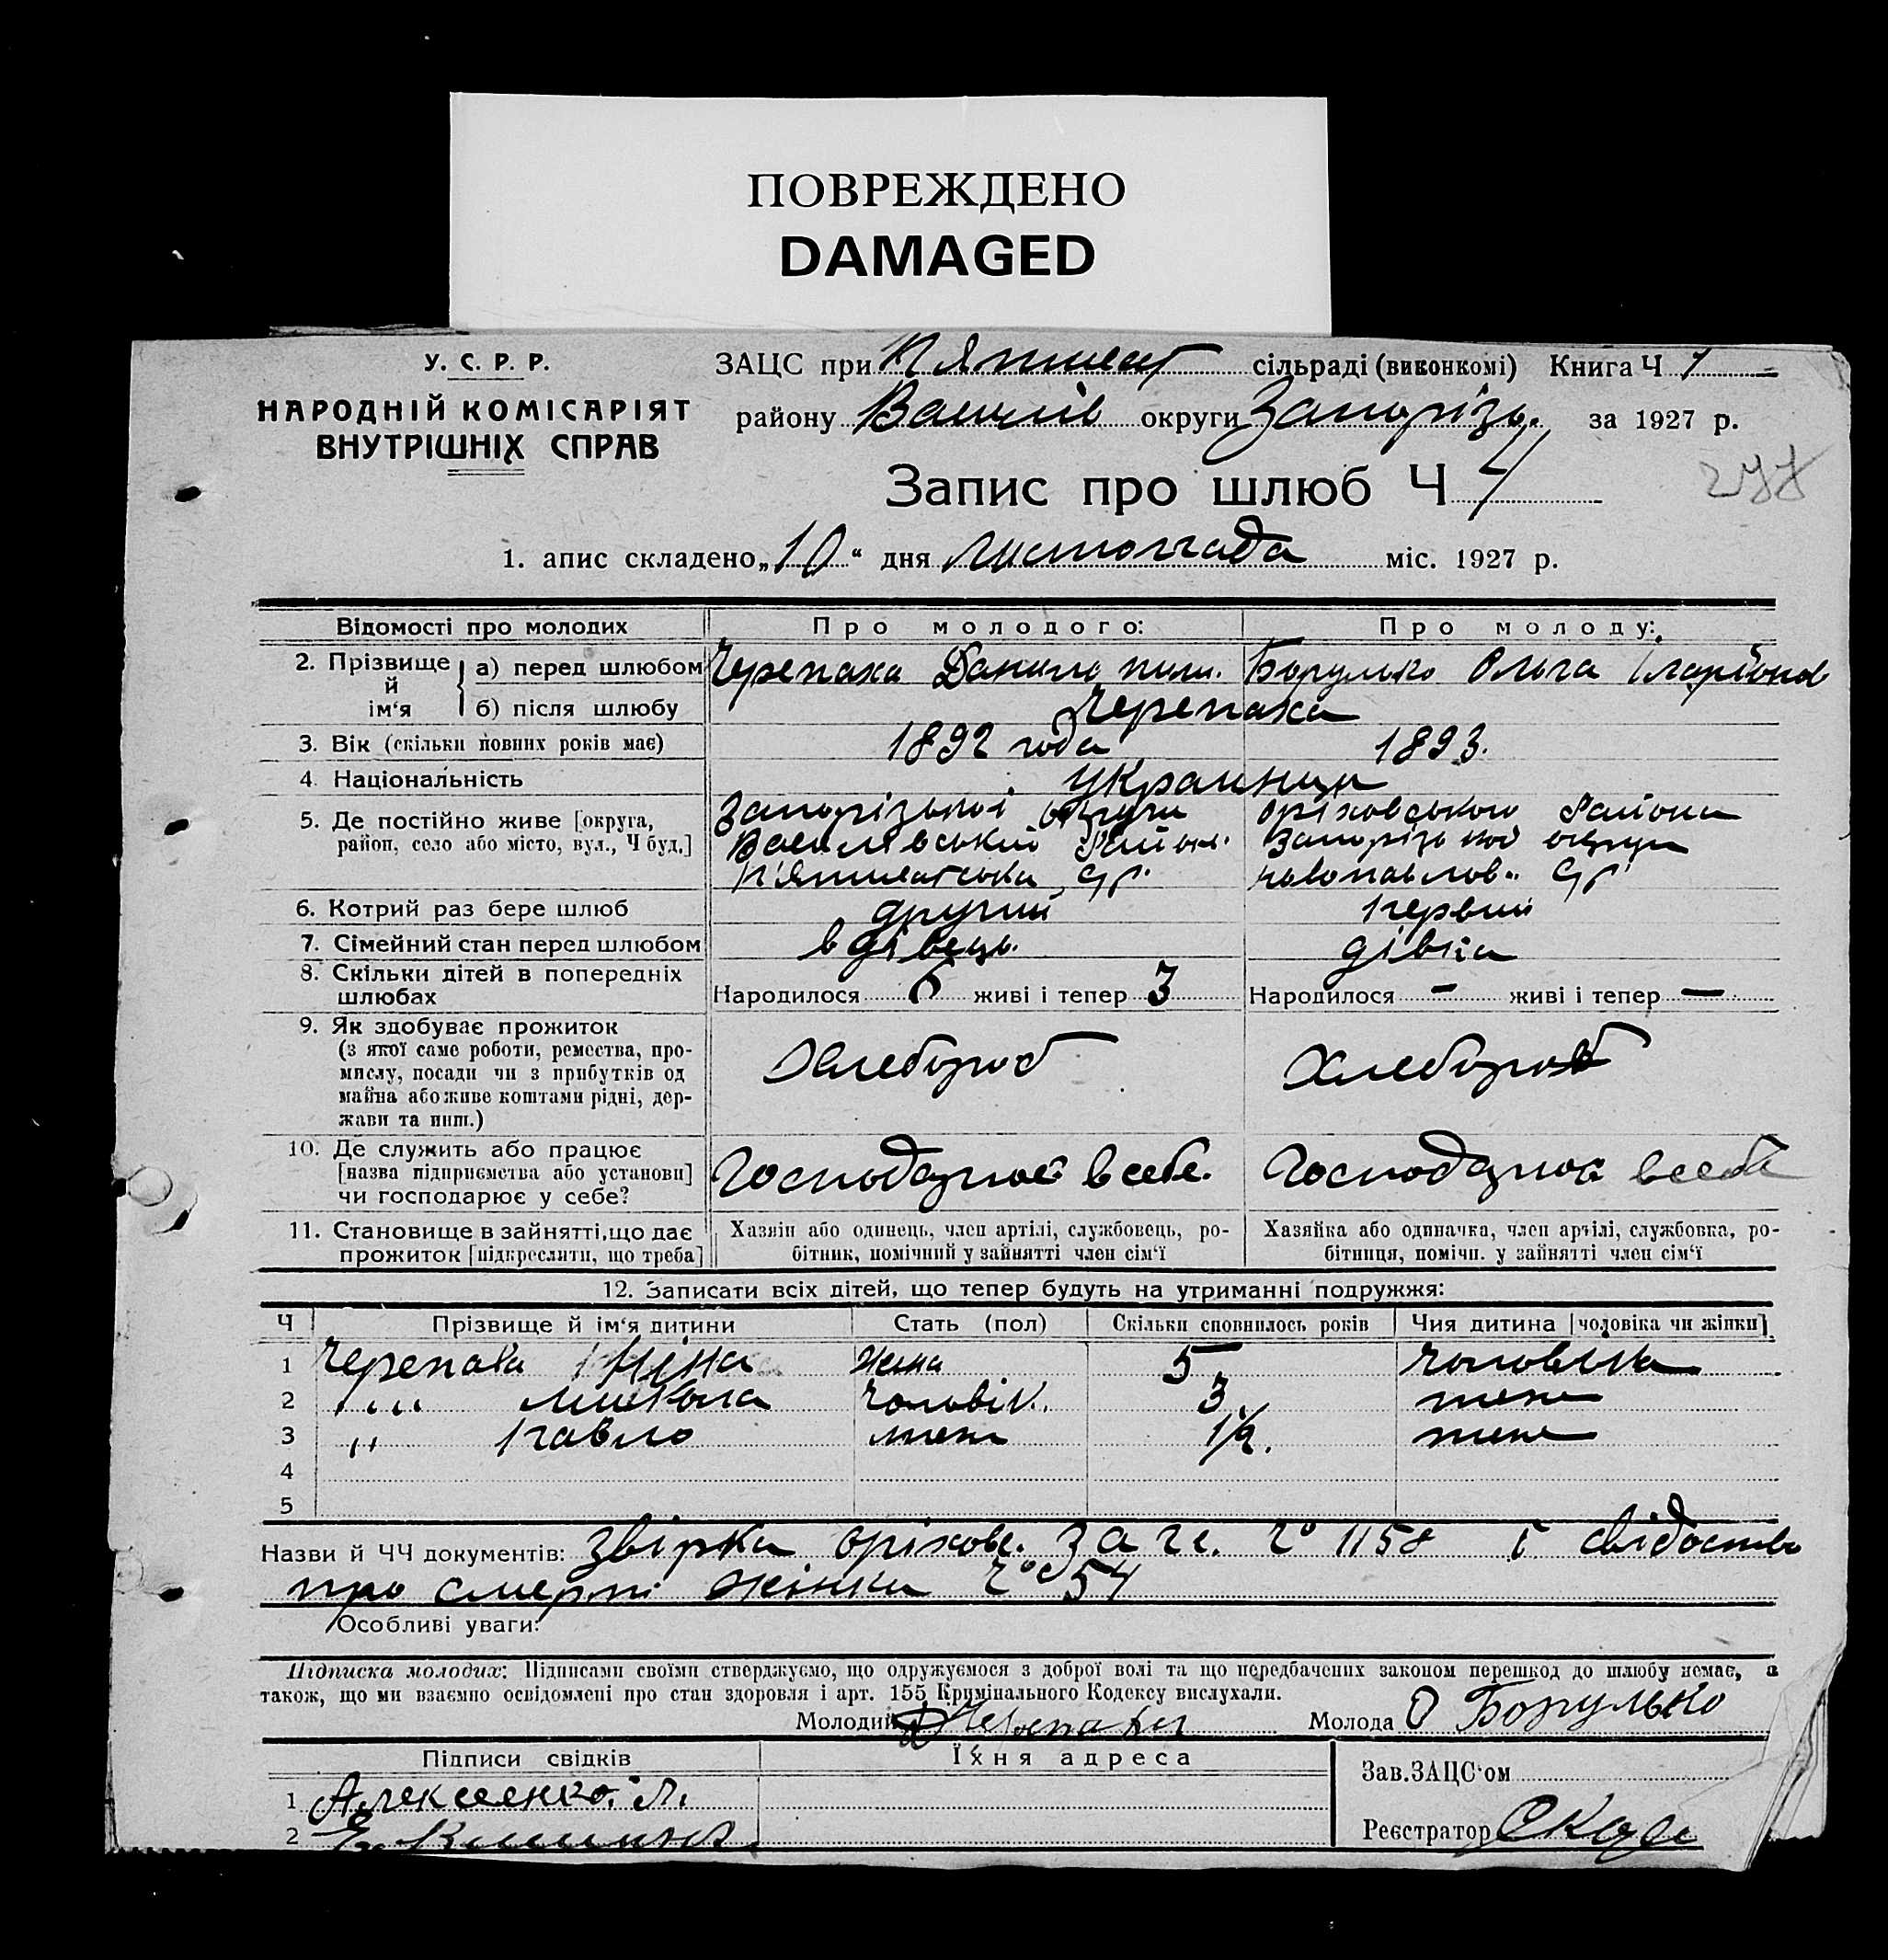 ПОВРЕЖДЕНО
DAMAGED
У. С. Р. Р.
НАРОДНІЙ КОМІСАРІЯТ
ВНУТРІШНІХ СПРАВ
ЗАЦС при Пятихат сільраді (виконкомі) Книга Ч 1
району Василів округи Запорізь. за 1927 р.
Запис про шлюб Ч
1. апис складено „10“ дня листопада міс. 1927 р.
Відомості про молодих Про молодого: Про молоду:
2. Прізвище й ім‘я
а) перед шлюбом Черепаха Данило Борулько Ольга Іларіонов
б) після шлюбу Черепаха
3. Вік (скільки повних років має) 1892 года 1893.
4 Національність украинци
5. Де постійно живе [округа, район, село або місто, вул., Ч буд.]
Запорізької округи Оріховського Района
Василівський Район. Запорізької округи
П'ятихатська новопавлов..
6. Котрий раз бере шлюб другий первий
7. Сімейний стан перед шлюбом вдівець. дівка
8. Скільки дітей в попередніх шлюбах Народилося 6 живі і тепер 3 Народилося – живі і тепер –
9. Як здобуває прожиток
(з якої саме роботи, ремества, про-
мислу, посади чи з прибутків од
майна або живе коштами рідні, дер-
жави та инш.)
Хлебороб Хлебороб
10. Де служить або працює
[назва підприємства або установи]
чи господарює у себе?
Господарює в себе. Господарює в себе
11. Становище в зайнятті, що дає
прожиток [підкреслити, що треба]
Хазяїн або одинець, член артілі, службовець, ро-
бітник, помічний у зайнятті член сім‘ї
Хазяйка або одиначка, член артілі, службовка, ро-
бітниця, помічн. у зайнятті член сім‘ї
12. Записати всіх дітей, що тепер будуть на утриманні подружжя:
Ч Прізвище й ім‘я дитини Стать (пол) Скільки сповнилось років Чия дитина [чоловіка чи жінки]
1 Черепаха Ніна жена 5 чоловіка
2 „ Микола чоловік. 3
3 „ Павло 1½.
4
5
Назви й ЧЧ документів: звірка оріхове. загс. № 1158 і свідоство
про смерть жінки № 54
Особливі уваги:
Підписка молодих: Підписами своїми стверджуємо, що одружуємося з доброї волі та що передбачених законом перешкод до шлюбу немає, а
також, що ми взаємно освідомлені про стан здоровля і арт. 155 Кримінального Кодексу вислухали.
Молодий Д Черепаха Молода О Борулько
Підписи свідків Їхня адреса Зав. ЗАЦС‘ом
1 Алексеенко. Л.
2
Реєстратор